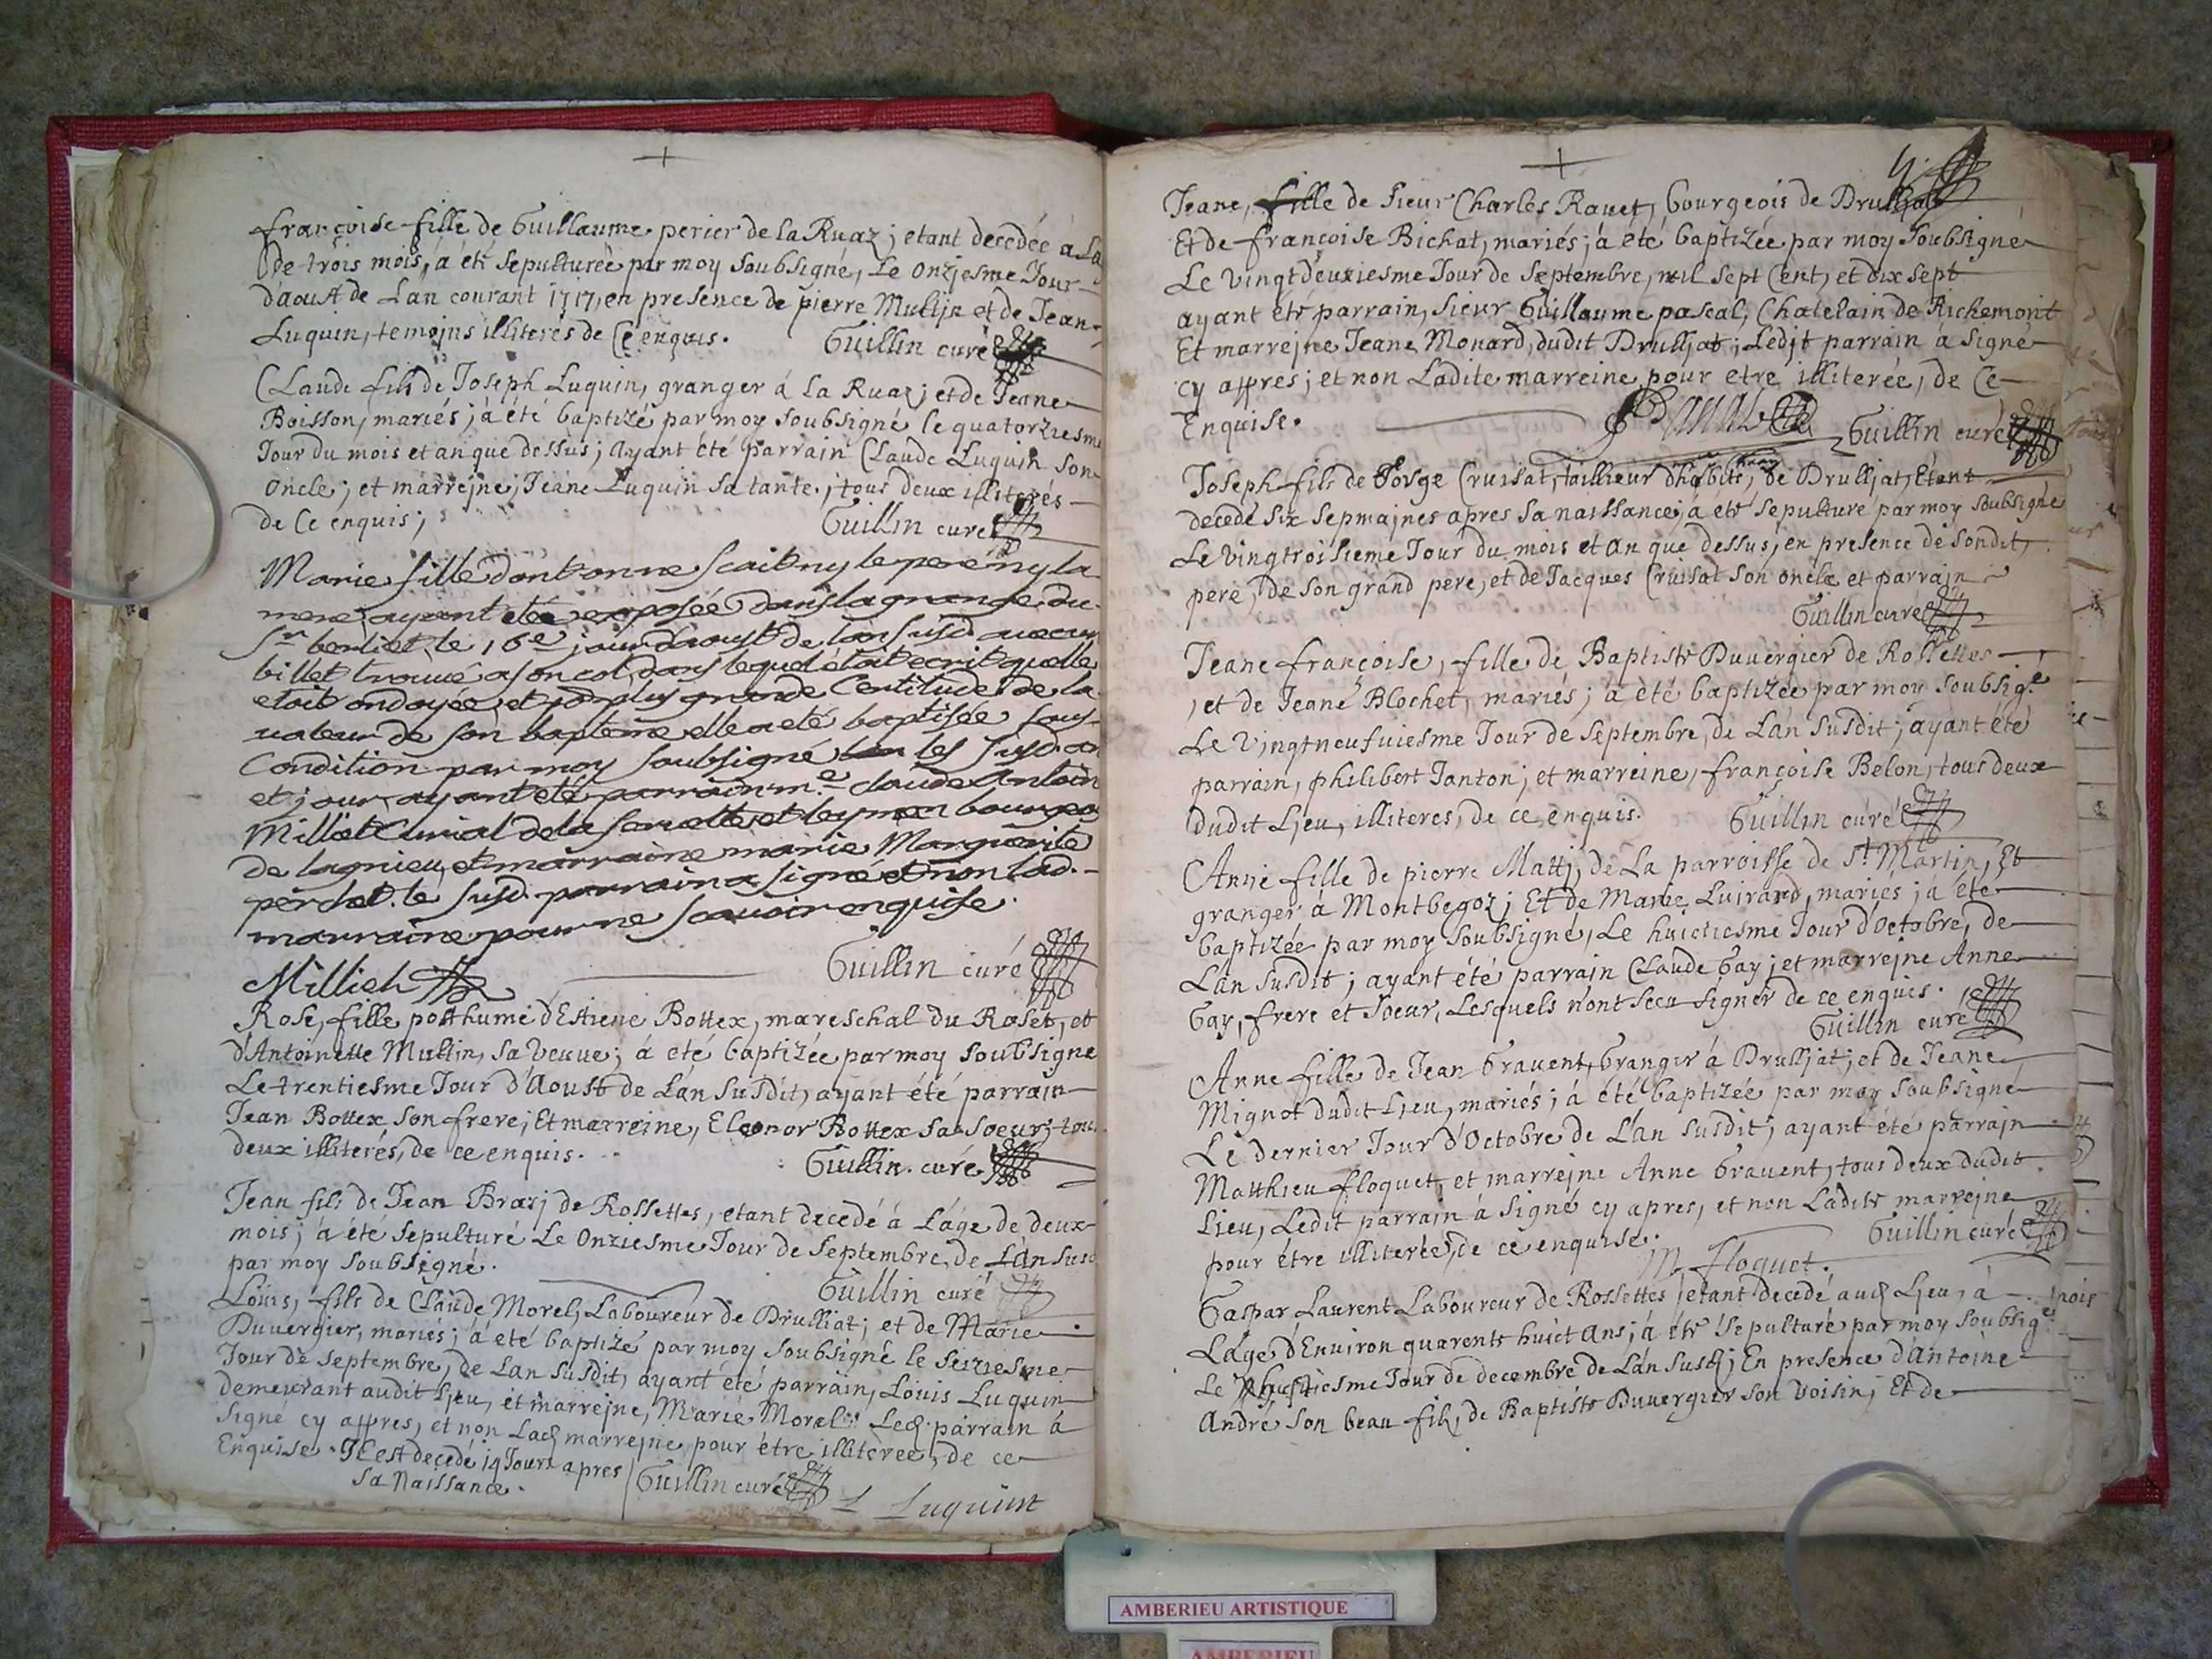 françoise fille de Guillaume perier de la Ruaz; etant decedée a la
de trois mois, à été sepulturée par moy soubsigné, Le onziesme Jour
d'aoust de Lan courant 1717, en presence de pierre Mullin et de Jean
Luquin, temoins illiterés de Ce enquis. Guillin curé
Claude fils de Joseph Luquin, granger á la Ruaz; et de Jeane
Boisson, mariés; à été baptizé par moy soubsigné le quatorziesme
Jour du mois et an que dessus; ayant été parrain Claude Luquin son
oncle; et marrejne; Jeane Luquin sa tante; tous deux illiterés
de Ce enquis; Guillin curé
Marie fille dont on ne scait ny le pere ny la
mere ayant eté exposée dans la grange du
Sr berliet le 16e jour daoust de lan susd. avec un
billet trouvé a son col dans lequel étoit ecrit quelle
etoit ondoyée et pour plus grande Certitude de la
valeur de son bapteme elle a eté baptisée sous
Condition par moy soubsigné les susd. an
et jour ayant été parrain m.e claude Antoin
Milliet Curial de la servette et leymen bourgeo
de lagnieu et marraine marie Marguerite
perdet. le susd. parrain a signé et non lad.
marraine pour ne scavoir enquise.
Milliet Guillin curé
Rose, fille posthume d'Estiene Bottex, mareschal du Roset, et
d'Antoinette Mullin, sa veuve; á eté baptizée par moy soubsigné
Le trentiesme Jour d'Aoust de Lán susdit, ayant été parrain
Jean Bottex son frere; Et marreine, Eleonor Bottex sa soeur; tou
deux illiterés, de ce enquis. Guillin curé
Jean fils de Jean Brazj de Rossettes, etant decedé á L'áge de deux
mois; à été sepulturé Le Onziesme Jour de Septembre, de Lán susd
par moy soubsigné. Guillin curé
Louis, fils de Claude Morel, Laboureur de Drulliat; et de Marie
Duvergier, mariés; á été baptizé par moy soubsigné le seiziesme
Jour de septembre, de Lan susdit, ayant été parrain, Louis Luquin
demeurant audit Ljeu, et marrejne, Marie Morel; Led. parrain á
signé cy appres, et non Lad. marrejne pour étre illiterée, de ce
Enquise. Il est decedé 19 Jours apres Guillin curé
sa Naissance. L Luquin
Jeane, fille de sieur Charles Ravet, bourgeois de Drulljat
Et de françoise Bichat, mariés; á été baptizée par moy soubsigné
Le vingtdeuxiesme Jour de Septembre, mil sept Cent, et dix sept
ayant été parrain, sieur Guillaume pascal, Chatelain de Richemont
Et marrejne Jeane Monard, dudit Drulljat; Ledjt parrain á signé
cy appres; et non Ladite marreine pour etre illiterée, de Ce
Enquise. Guillin curé
Joseph fils de George Cruisat, taillieur d'habits, de Drulljat, Etant
decedé six sepmajnes apres sa naissance; á été sepulturé par moy soubsigné
Le vingtroisieme Jour du mois et an que dessus; en presence de sondit
pere, de son grand pere, et de Jacques Cruisat son oncle et parrain
Guillin curé
Jeane françoise, fille de Baptiste Duvergier de Rossettes
, et de Jeane Blochet, mariés; á été baptizée par moy soubsig.é
Le Vingtneufuiesme Jour de Septembre, de Lán susdit; ayant été
parrain, philibert Janton; et marreine, françoise Belon, tous deux
dudit Ljeu, illiteres, de ce enquis. Guillin curé
Anne fille de pierre Mattj, de La parroisse de St Martin, Et
granger á Montbegoz; Et de Marie Luirard, mariés; á été
baptizée par moy soubsigné, Le huictiesme Jour d'Octobre, de
Lán susdit; ayant été parrain Claude Gay; et marrejne Anne
Gay, frere et soeur, Lesquels n'ont sceu signer de ce enquis.
Guillin curé
Anne fille de Jean Gravent, Granger á Drulljat; et de Jeane
Mignot dudit Ljeu, mariés; á été baptizée par moy soubsigné
Le dernier Jour d'Octobre de Lán susdit; ayant été parrajn
Matthieu floquet, et marrejne Anne Gravent, tous deux dudit
Lieu, Ledit parrajn á signé cy apres, et non Ladite marrejne
pour étre illiterée, de ce enquise. Guillin curé
M floquet.
Gaspar Laurent Laboureur de Rossettes etant decedé aud Ljeu, á
Láge d'Environ quarente huict ans; á été sepulturé par moy soubsig.é
Le huictiesme Jour de decembre de Lán susd; En presence d'Antoine
André son beau fils, de Baptiste Duvergier son voisin; Et de
AMBERIEU ARTISTIQUE
AMBERIEU